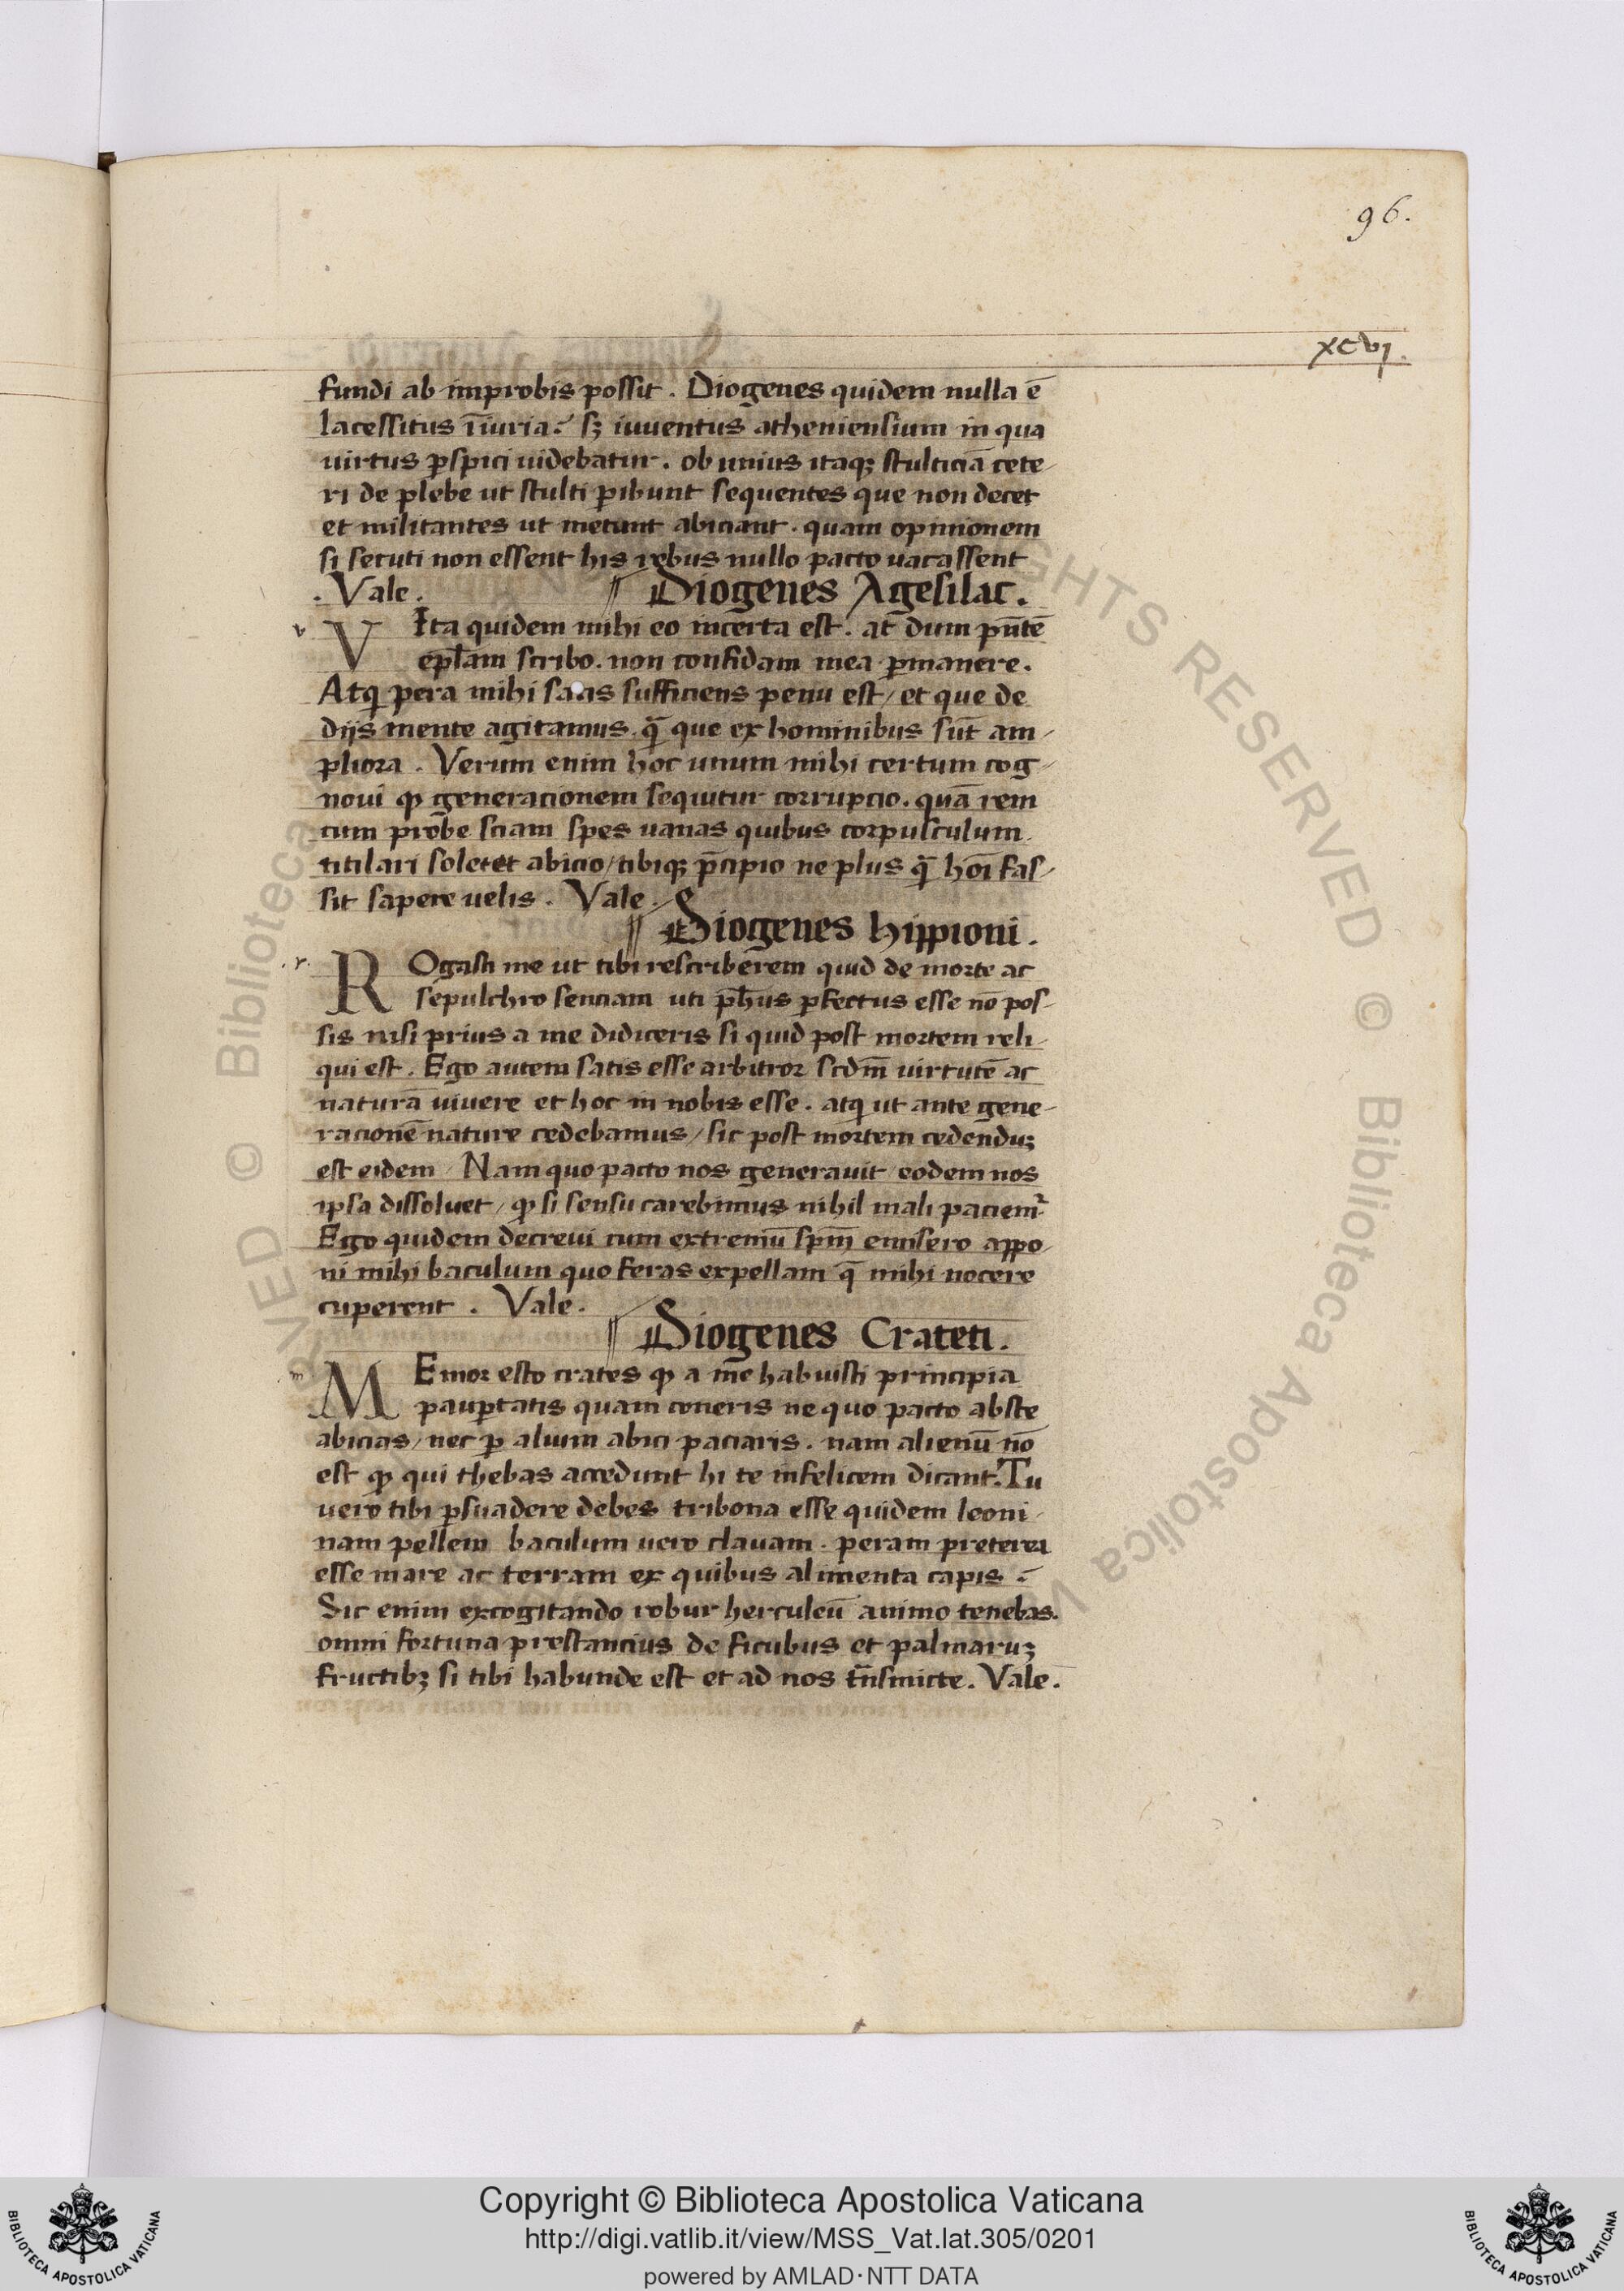 96.
xcvj.
fundi ab improbis possit. Diogenes quidem nulla ē
lacessitus ı̄iuria: sꝫ iuuentus atheniensium in qua
uirtus ꝑspici uidebatur. ob unius itaqꝫ stulticiā cete-
ri de plebe ut stulti ꝑibunt sequentes que non decet
et militantes ut metunt abiciant. quam opinionem
si secuti non essent his rebus nullo pacto uacassent
. Vale. Diogenes Agesilac.
v VIta quidem mihi eo incerta est. at dum pn̄tē
epl̄am scribo. non confidam mea ꝑmanere.
Atqꝫ pera mihi satis sufficiens penu est/ et que de
dijs mente agitamus. q̄ que ex hominibus sūt am-
pliora. Verum enim hoc unum mihi certum cog-
noui ꝙ generacionem sequitur corrupcio. quā rem
cum probe sciam spes uanas quibus corpusculum
titilari soleret abicio/ tibiqꝫ p̄cipio ne plus q̄ hōı fas-
sit sapere uelis. Vale.
Diogenes hippioni.
.r. ROgasti me ut tibi rescriberem quid de morte ac
sepulchro senciam uti ph̄us ꝑfectus esse nō pos-
sis nisi prius a me didiceris si quid post mortem reli-
qui est. Ego autem satis esse arbitror scdm̄ uirtutē ac
naturā uiuere et hoc in nobis esse. atqꝫ ut ante gene-
racionē nature cedebamus/ sic post mortem cedenduꝫ
est eidem/ Nam quo pacto nos generauit/ eodem nos
ipsa dissoluet/ ꝙ si sensu carebimus nihil mali paciem̄
Ego quidem decreui cum extremū spm̄ emisero appo-
ni mihi baculum quo feras expellam q̄ mihi nocere
cuperent. Vale.
Diogenes Crateti.
m MEmor esto crates ꝙ a me habuisti principia
pauꝑtatis quam coneris ne quo pacto abste
abicias/ nec ꝑ alium abici paciaris. nam alienū nō
est ꝙ qui thebas accedunt hi te infelicem dicant. Tu
uero tibi ꝑsuadere debes tribona esse quidem leoni-
nam pellem baculum uero clauam. peram preterea
esse mare ac terram ex quibus alimenta capis:
Sic enim excogitando robur herculeū animo tenebas.
omni fortuna prestancius de ficubus et palmaruꝫ
fructibꝫ si tibi habunde est et ad nos tn̄smicte. Vale.
RIGHTS RESERVED © Biblioteca Apostolica V
RVED © Biblioteca
Copyright © Biblioteca Apostolica Vaticana
http://digi.vatlib.it/view/MSS_Vat.lat.305/0201
powered by AMLAD·NTT DATA
BIBLIOTECA APOSTOLICA VATICANA
BIBLIOTECA APOSTOLICA VATICANA